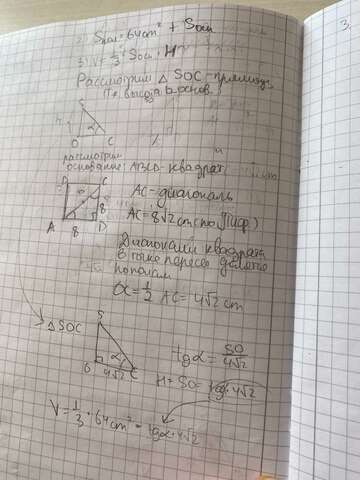 Sпол = 64cm² + Sосн
3) V = 1/3 · Sосн · H
Рассмотрим △SOC - прямоуг
(т.к высота ⊥ основ.)
S
h
α
O C
рассмотрим
основание: ABCD - квадрат
AC - диагональ
B C
8
A 8 D
AC = 8√2 cm (по Пиф.)
Диагонали квадрата
в точке пересеч делятся
пополам
= 1/2 AC = 4√2 cm
△SOC
S
α
O 4√2 C
tgα = SO/4√2
H = SO = tgα · 4√2
V = 1/3 · 64cm² · tgα · 4√2
3.